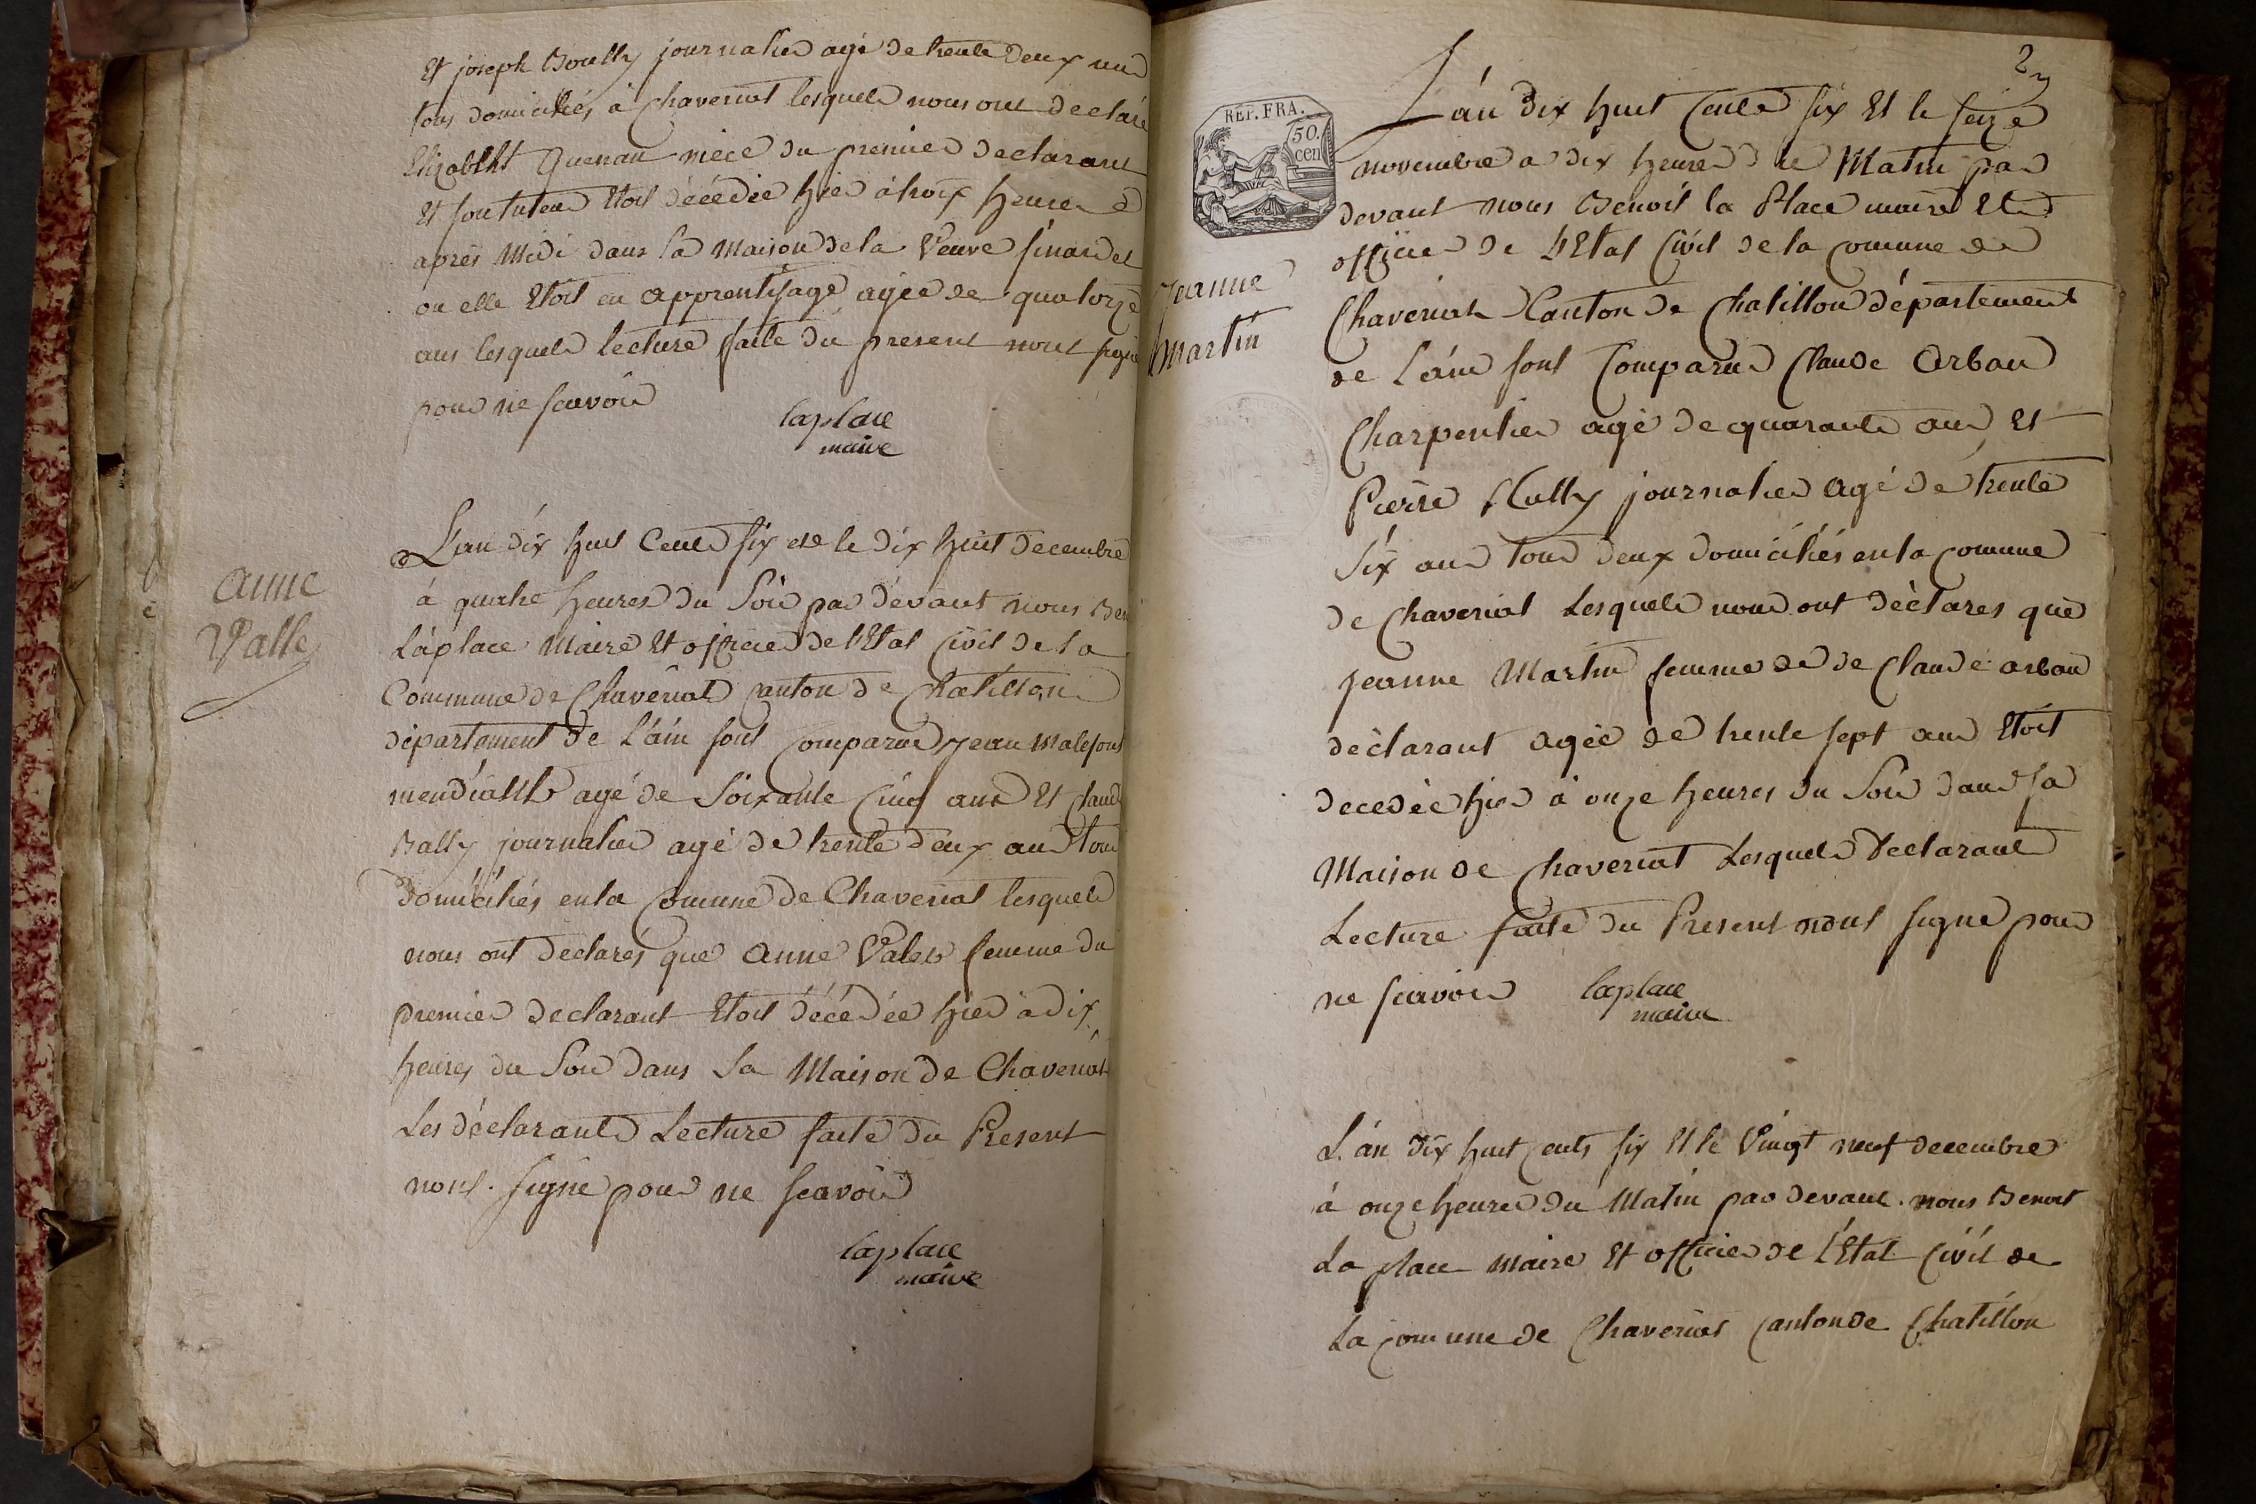 Et joseph Boully journalier agé de trente deux ans
tous domiciliés à Chaveriat lesquels nous ont declaré
Elizabeht Quenau niece du premier declarant
Et son tuteur Etoit décédée hier à trois heures
après Midi dans la maison de la Veuve sinardet
ou elle Etoit en apprentisage agée de quatorze
ans lesquels lecture faite du present n'ont signé
pour ne scavoir
laplace
maire
anne
Valle
L'an dix huit Cents six et le dix huit decembre
à quatre heures du Soir par dévant nous Ben
Laplace Maire Et officier de l'Etat Civil de la
Commune de Chavériat canton de Chatillon
département de L'ain sont comparus jean Malesont
mendiant agé de Soixante Cinq ans Et Claude
Bally journalier agé de trente deux ans tous
domiciliés en la Comune de Chaveriat lesquels
nous ont declarés que anne Valet femme du
premier declarant Etoit décédée hier à dix
heures du Soir dans Sa Maison de Chavériat
Les déclarants Lecture faite du Present
n'ont signé pour ne scavoir
laplace
maire
2
REP. FRA.
50.
cen
jeanne
martin
L'an Dix huit Cents six Et le seize
novembre a dix heures de Matin par
devant nous Benoit la Place maire Et
officier de L'Etat Civil de la comune de
Chaveriat Canton de Chatillon département
de L'ain sont Comparus Claude Orban
Charpentier agé de quarante ans Et
Pierre Mully journalier agé de trente
Six ans tous deux domiciliés en la comune
de Chaveriat Lesquels nous ont déclares que
jeanne Martin femme de de Claude orban
déclarant agée de trente sept ans Etoit
decedée hier à onze heures du Soir dans sa
Maison de Chaveriat Lesquels declarants
Lecture faite du Present n'ont signé pour
ne scavoir
laplace
maire
L'an dix huit cents six Et le vingt neuf decembre
à onze heures du Matin par devant nous Benoit
La place Maire Et officier de l'Etat Civil de
La comune de Chaveriat canton de Chatillon